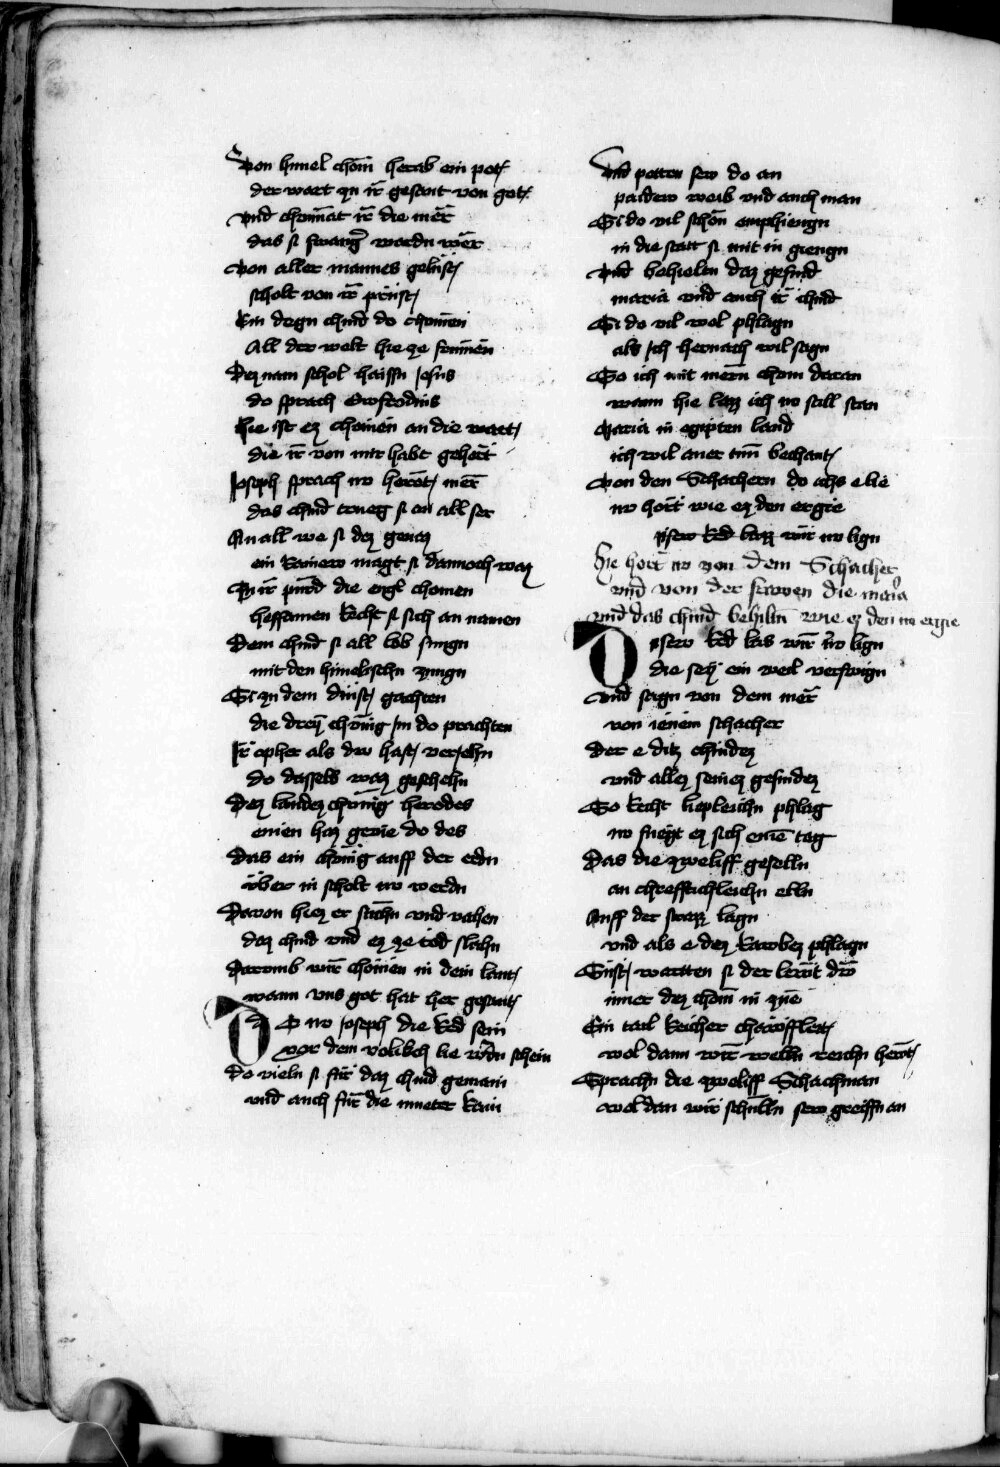 Von himel chom herab ein pot
der wart zu ir gesant von got
Vnd chomat ir die mer
das si swanger wordn wer
Von aller mannes gelust
scholt von ir prust
Ein degn chind do chomen
All der welt hie ze fromen
Dez nam schol haissn Jesus
do sprach Effrodius
hie ist ez chomen an die wart
die ir von mir habt gehort
Joseph sprach nv herot mer
das chind trueg si on all ser
An all we si dez genas
ein rainew magt si dannoch waz
In ir purd die engl chomen
heffamen recht si sich an namen
Dem chind si all lob sungn
mit den himelischn zungn
Si zu dem dinst gachten
die drey chunig im do prachten
Ir opher als dw hast veriehn
do dasselb waz geschehn
Dez landez chunig herodes
einen haz gevie do des
Das ein chunig auff der erdn
vber in scholt nv werdn
Davon hiez er suchn vnd vahen
daz chind vnd ez ze tod slahn
Darvmb wir chomen in dein lant
wann vns got hat her gesant
Do nv Joseph die red sein
vor dem volikch lie wrdn schein
Do vieln si fur daz chind gemain
vnd auch fur die mueter rain
Vnd petten sew do an
paidew weib vnd auch man
Si do vil schon emphiengn
in die statt si mit in giengn
Vnd behielen daz gesind
maria vnd auch ir chind
Si do vil wol phlagn
als ich hernach wil sagn
So ich mit mern chom daran
wann hie lazz ich nv still stan
Maria in egipten land
ich wil auer tun bechant
Von den Schachern do ichs e lie
nv hort wie ez den ergie
vsew red lazz wir nv lign
Hie hort nv von dem Schacher
vnd von der frawen die maria
vnd das chind behiltn wie ez den nv ergie
Vsew red las wir nv lign
die sey ein weil verswign
Vnd sagn von dem mer
von ienem schacher
Der e ditz chindez
vnd allez seinez gesindez
So recht liepleichn phlag
nv fuegt ez sich eine tag
Das die zweliff geselln
an chrefftichleichn elln
Auff der strazz lagn
vnd als e dez raubez phlagn
Sust wartten si der lewt dro
inner dez chom in zue
Ein tail reicher chauffleut
wol dann wir welln reichn hewt
Sprachn die zweliff Schachman
wol dan wir schulln sew greiffn an